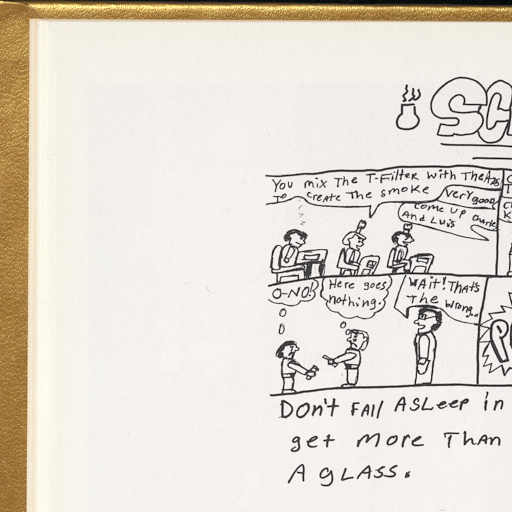 SC
You mix The T-Filter with The A25
To create The smoke
very good
come up Charles
And Luis
O-NO!
Here goes
nothing.
WAit! ThaTs
The wrong..
DON'T FAll ASLeep in
get more THAN
A gLASS.